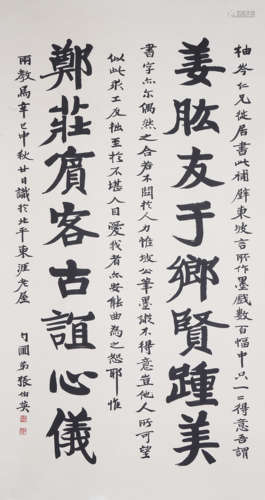 柚岑仁兄從居書此補壁東坡言所作墨戲數百幅中只一二得意吾謂
姜肱友于鄉賢踵美
書字亦爾偶然之合若不關於人力惟坡公筆墨縱不得意豈他人所可望
似此求工反拙至於不堪入目愛我者亦安能曲為之恕耶惟
鄭莊賓客古誼心儀
兩教焉辛巳中秋廿日識於北平東涯老屋
勺圃弟張伯英